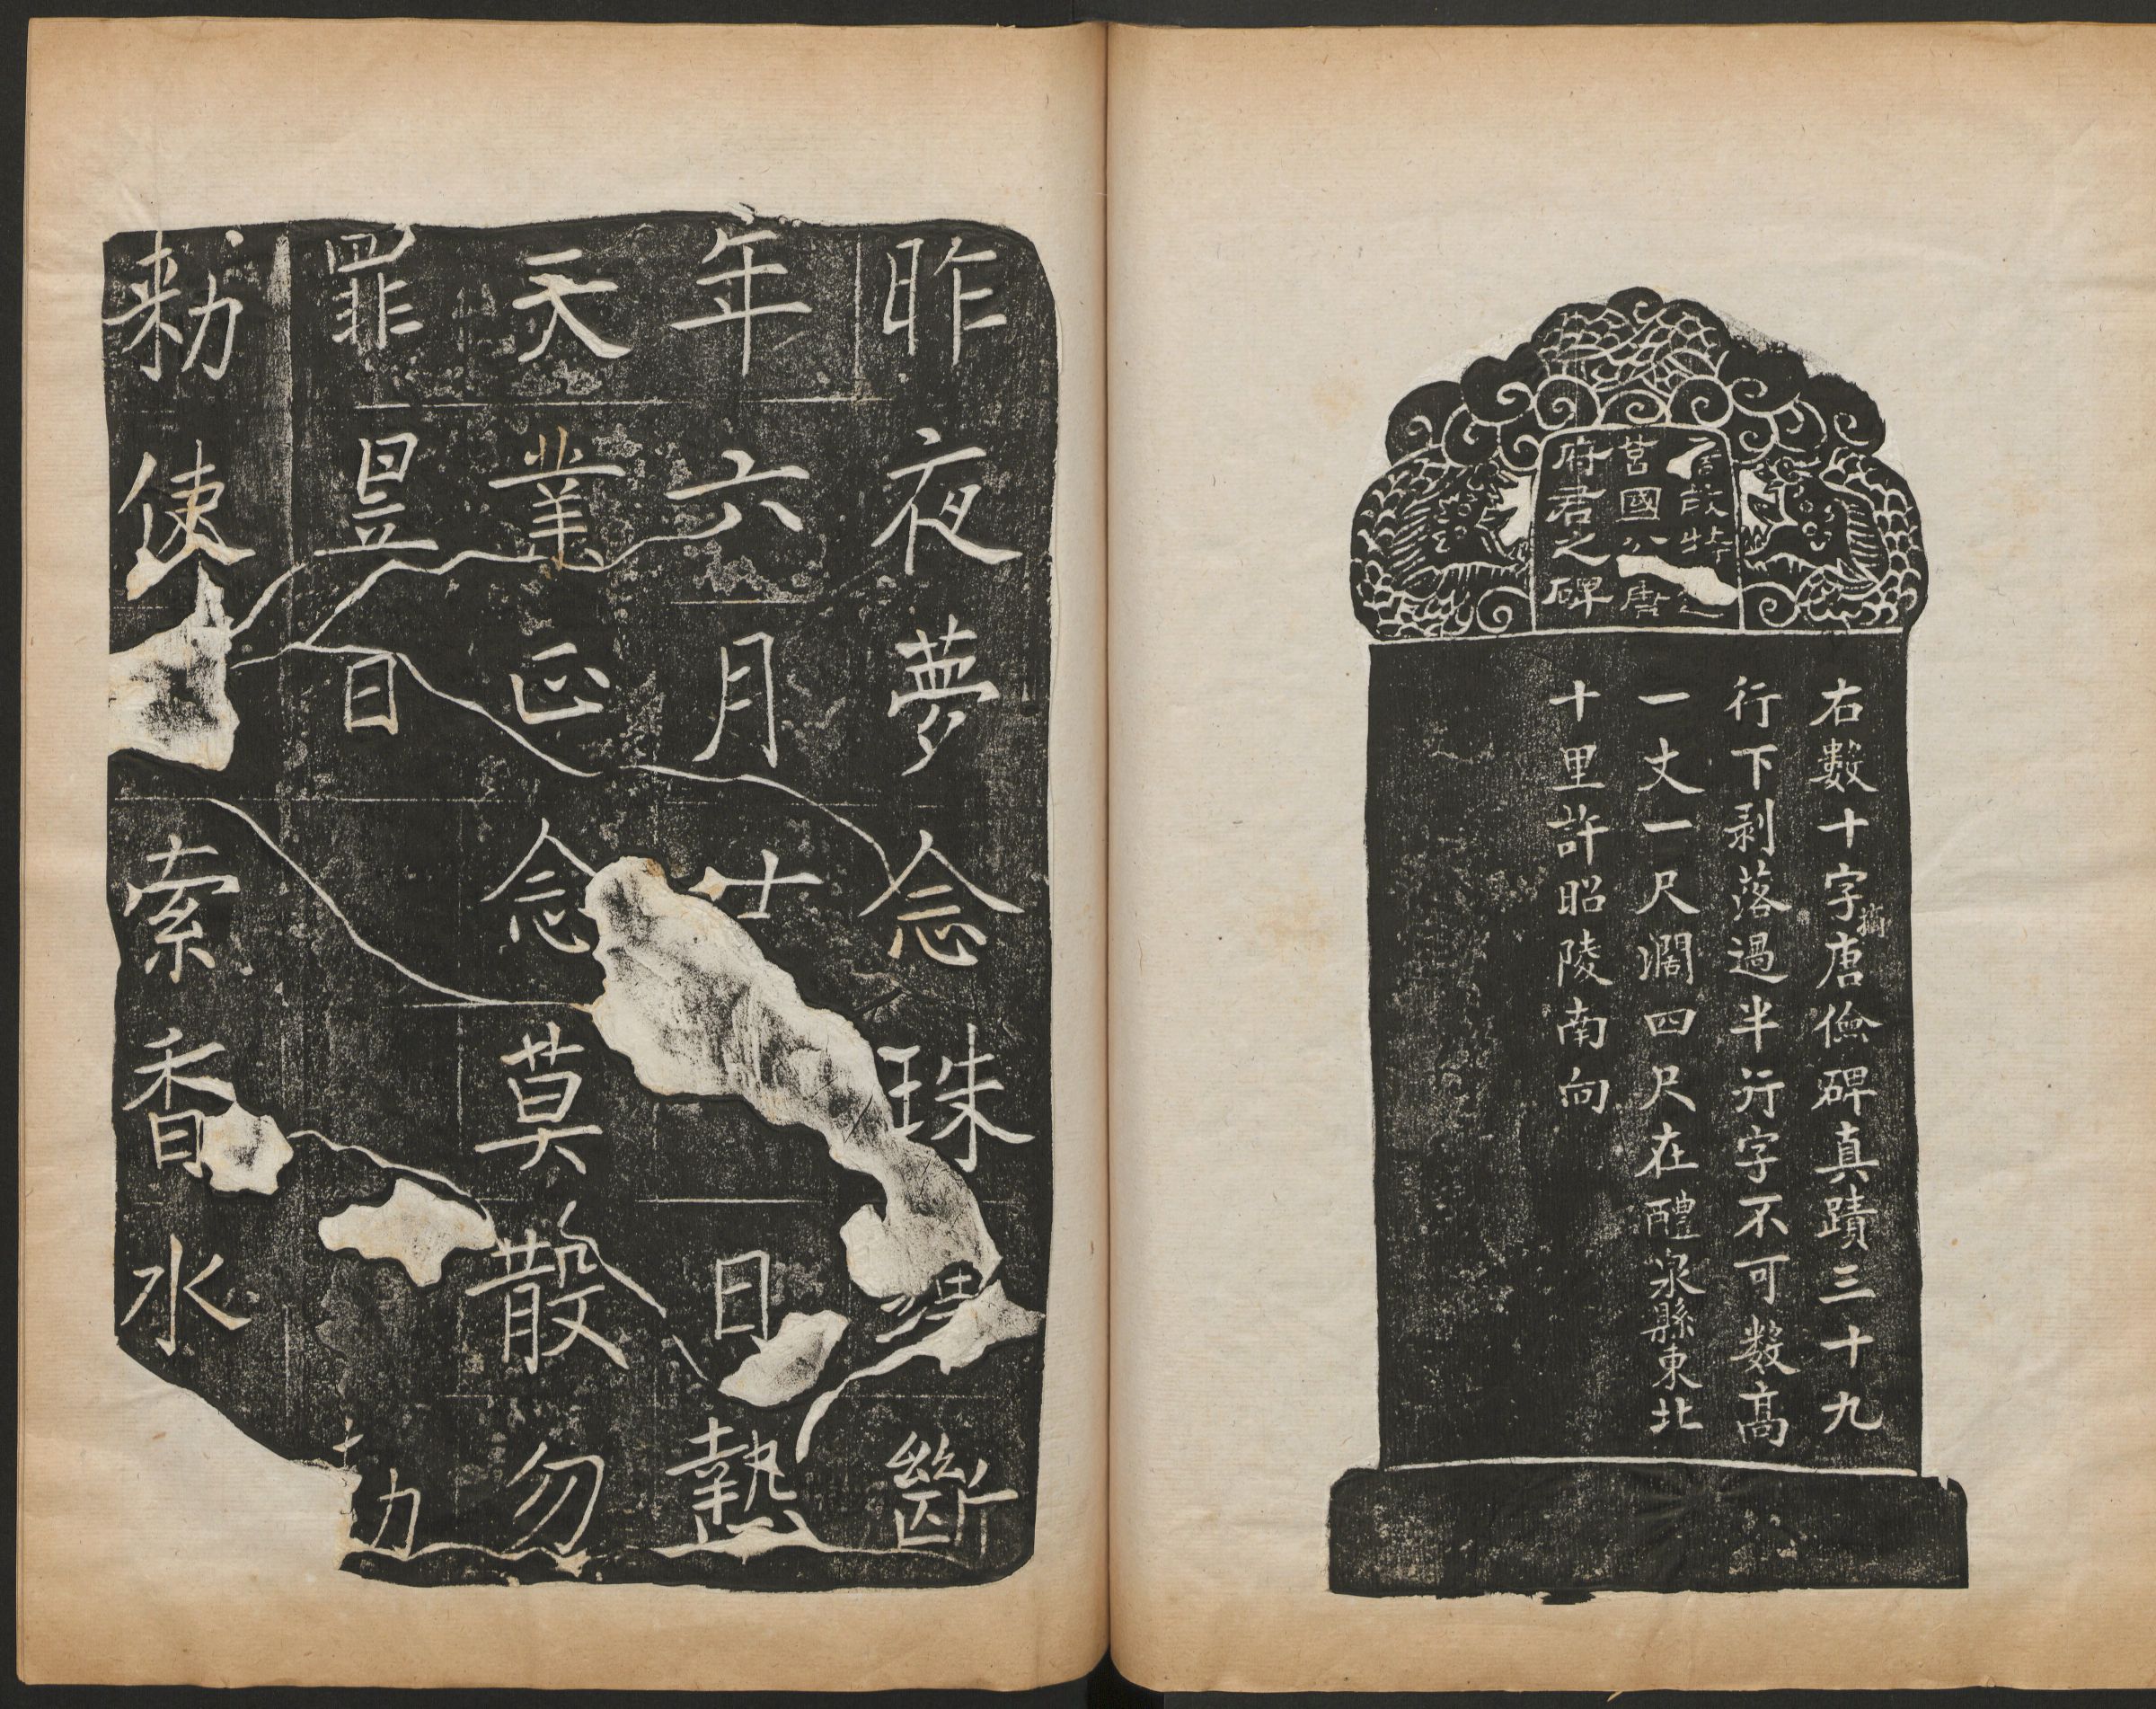 故特
莒國公唐
府君之碑
右數十字摘唐儉碑真蹟三十九
行下剥落過半行字不可數髙
一丈一尺濶四尺在醴泉縣東北
十里許昭陵南向
昨夜夢念珠斷
年六月士日熱
天業正念莫散勿
罪昱日
勑使索香水